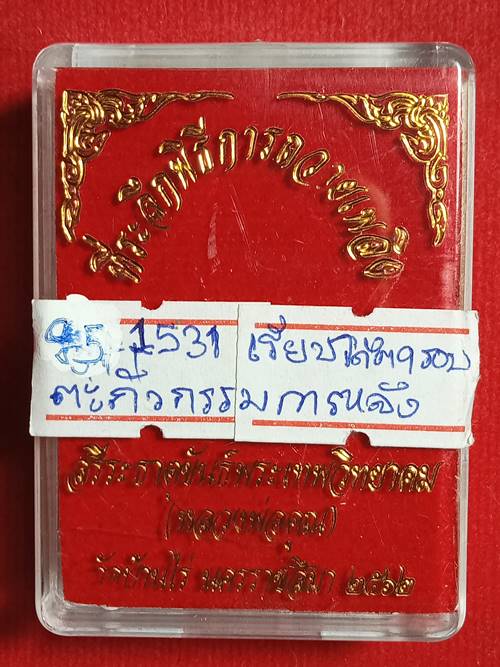 ที่ระลึกพิธีการถวายเพลิง
1531 เรียบ
ตะกั่วกรรมการหลัง
สรีระธาตุขันธ์พระเทพวิทยาคม
(หลวงพ่อคูณ)
วัดบ้านไร่ นครราชสีมา ๒๕๖๒